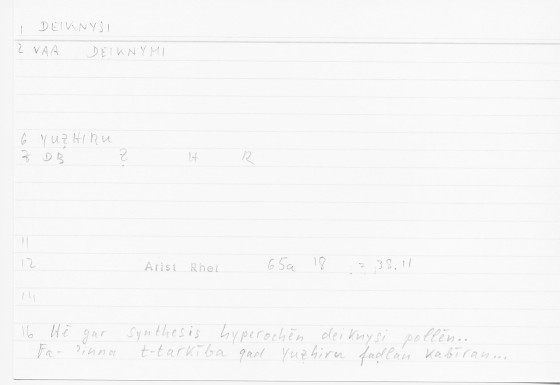 1 DEIKNYSI
2 VAA DEIKNYMI
6 YUẒHIRU
7 DB Ẓ H R
11
12 Arist Rhet 65a 18 = 38.11
14
16 Hē gar synthesis hyperochēn deiknysi pollēn..
Fa-ʾinna t-tarkība qad yuẓhiru faḍlan kabīran...